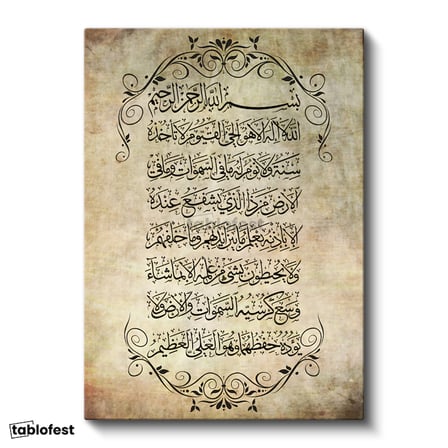 بسم الله الرحمن الرحيم
الله لا اله الا هو الحي القيوم لا تأخذه
سنة ولا نوم له ما في السموات وما في
الارض من ذا الذي يشفع عنده
الا باذنه يعلم ما بين ايديهم وما خلفهم
ولا يحيطون بشئ من علمه الا بما شاء
وسع كرسيه السموات والارض ولا
يؤده حفظهما وهو العلي العظيم
tablofest
tablofest